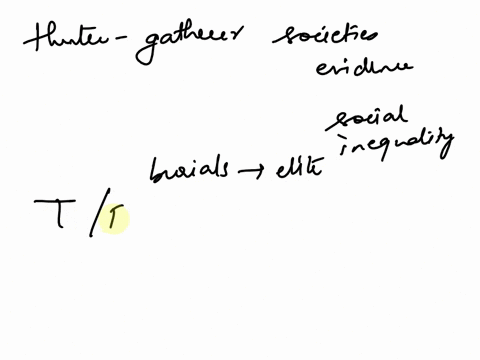 Hunter - gatherer societies
evidence
social
inequality
burials → elite
T / F